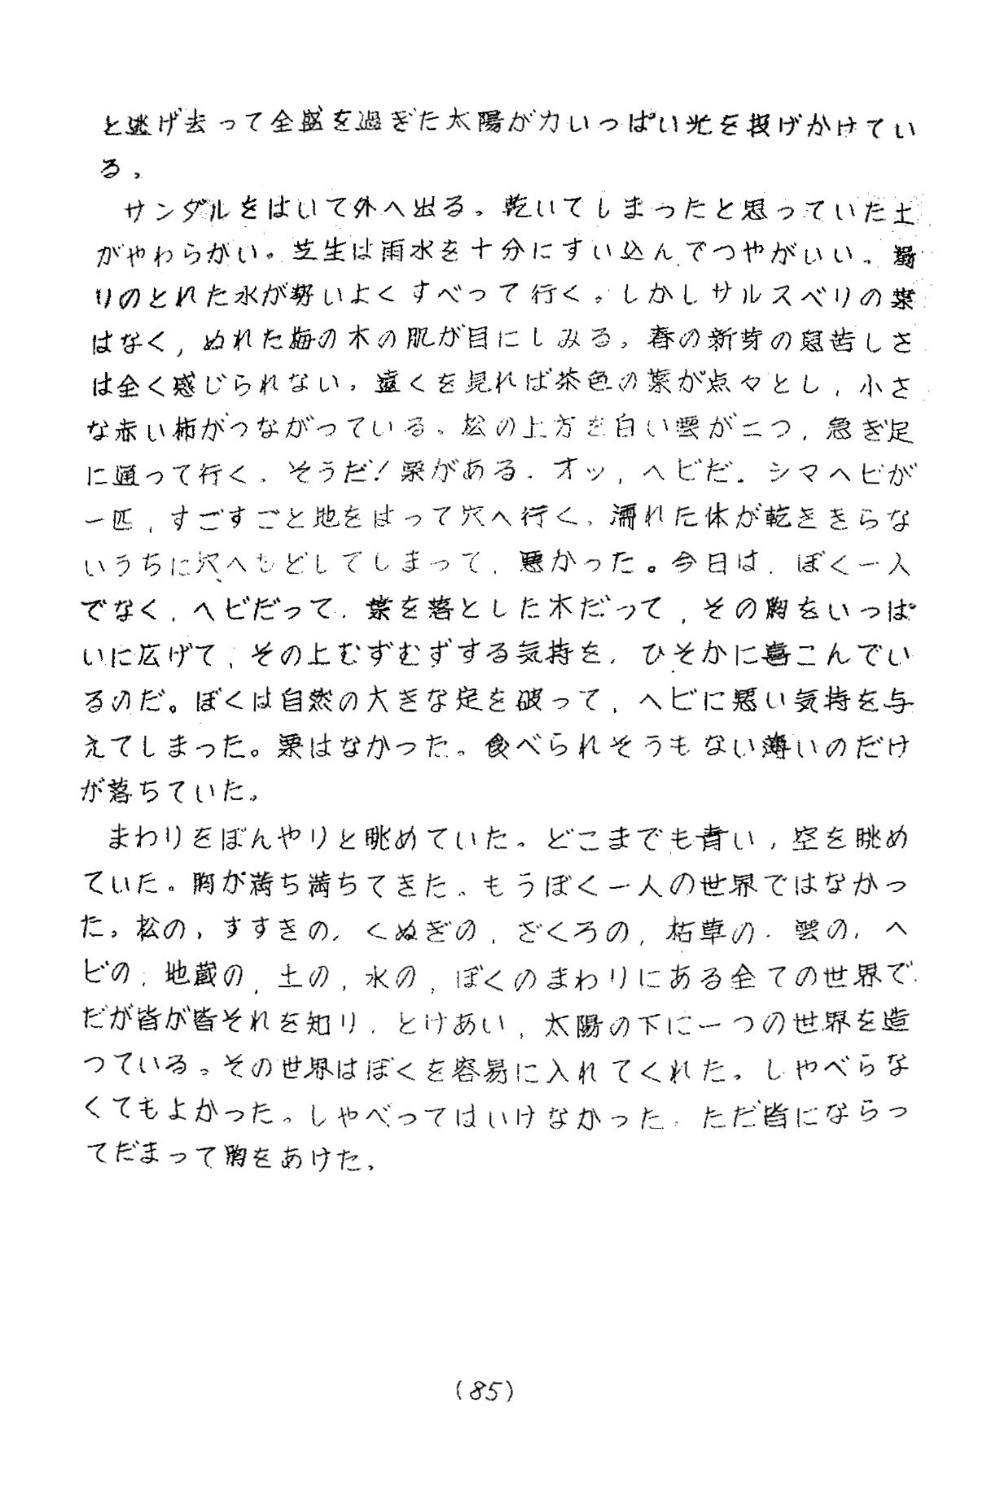 と逃げ去って全盛を過ぎた太陽が力いっぱい光を投げかけてい
る。
サンダルをはいて外へ出る。乾いてしまったと思っていた土
がやわらかい。芝生は雨水を十分にすい込んでつやがいい。濁
りのとれた水が勢いよくすべって行く。しかしサルスベリの葉
はなく，ぬれた梅の木の肌が目にしみる。春の新芽の息苦しさ
は全く感じられない。遠くを見れば茶色の葉が点々とし，小さ
な赤い柿がつながっている。松の上方を白い雲が二つ，急ぎ足
に通って行く。そうだ！栗がある。オッ，ヘビだ。シマヘビが
一匹，すごすごと地をはって穴へ行く。濡れた体が乾ききらな
いうちに穴へもどしてしまって，悪かった。今日は，ぼく一人
でなく，ヘビだって，葉を落とした木だって，その胸をいっぱ
いに広げて，その上むずむずする気持を，ひそかに喜こんでい
るのだ。ぼくは自然の大きな定を破って，ヘビに悪い気持を与
えてしまった。栗はなかった。食べられそうもない薄いのだけ
が落ちていた。
まわりをぼんやりと眺めていた。どこまでも青い，空を眺め
ていた。胸が満ち満ちてきた。もうぼく一人の世界ではなかっ
た。松の，すすきの，くぬぎの，ざくろの，枯草の，雲の，ヘ
ビの，地蔵の，土の，水の，ぼくのまわりにある全ての世界で，
だが皆が皆それを知り，とけあい，太陽の下に一つの世界を造
つている。その世界はぼくを容易に入れてくれた。しゃべらな
くてもよかった。しゃべってはいけなかった。ただ皆にならっ
てだまって胸をあけた。
(85)